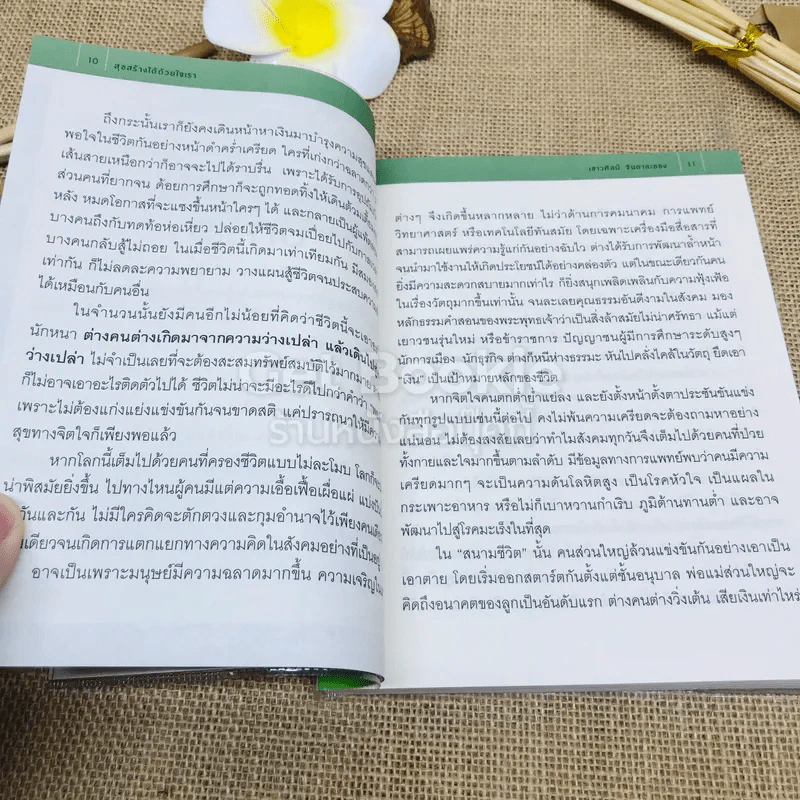 10 สุขสร้างได้ด้วยใจเรา
ถึงกระนั้นเราก็ยังคงเดินหน้าหาเงินมาบำรุงความสุข
พอใจในชีวิตกันอย่างหน้าดำคร่ำเครียด ใครที่เก่งกว่าฉลาดกว่า
เส้นสายเหนือกว่าก็อาจจะไปได้ราบรื่น เพราะได้รับการ
ส่วนคนที่ยากจน ด้อยการศึกษาก็จะถูกทอดทิ้งให้เดินต้วมเตี้ยม
หลัง หมดโอกาสที่จะแซงขึ้นหน้าใครๆ ได้ และกลายเป็นผู้แพ้
บางคนถึงกับทดท้อห่อเหี่ยว ปล่อยให้ชีวิตจมเปื่อยไปกับ
บางคนกลับสู้ไม่ถอย ในเมื่อชีวิตนี้เกิดมาเท่าเทียมกัน มีสมอง
เท่ากัน ก็ไม่ลดละความพยายาม วางแผนสู้ชีวิตจนประสบความ
ได้เหมือนกับคนอื่น
ในจำนวนนั้นยังมีคนอีกไม่น้อยที่คิดว่าชีวิตนี้จะเอา
นักหนา ต่างคนต่างเกิดมาจากความว่างเปล่า แล้วเดินไป
ว่างเปล่า ไม่จำเป็นเลยที่จะต้องสะสมทรัพย์สมบัติไว้มากมาย
ก็ไม่อาจเอาอะไรติดตัวไปได้ ชีวิตไม่น่าจะมีอะไรดีไปกว่าคำว่า
เพราะไม่ต้องแก่งแย่งแข่งขันกันจนขาดสติ แค่ปรารถนาให้มี
สุขทางจิตใจก็เพียงพอแล้ว
หากโลกนี้เต็มไปด้วยคนที่ครองชีวิตแบบไม่ละโมบ โลกก็จะ
น่าพิสมัยยิ่งขึ้น ไปทางไหนผู้คนมีแต่ความเอื้อเฟื้อเผื่อแผ่ แบ่งปัน
กันและกัน ไม่มีใครคิดจะตักตวงและกุมอำนาจไว้เพียงคนเดียว
เดียวจนเกิดการแตกแยกทางความคิดในสังคมอย่างที่เป็นอยู่
อาจเป็นเพราะมนุษย์มีความฉลาดมากขึ้น ความเจริญใน
เชาวศิลป์ จินดาละออง 11
ต่างๆ จึงเกิดขึ้นหลากหลาย ไม่ว่าด้านการคมนาคม การแพทย์
วิทยาศาสตร์ หรือเทคโนโลยีทันสมัย โดยเฉพาะเครื่องมือสื่อสารที่
สามารถเผยแพร่ความรู้แก่กันอย่างฉับไว ต่างได้รับการพัฒนาล้ำหน้า
จนนำมาใช้งานให้เกิดประโยชน์ได้อย่างคล่องตัว แต่ในขณะเดียวกันคน
ยิ่งมีความสะดวกสบายมากเท่าไร ก็ยิ่งสนุกเพลิดเพลินกับความฟุ้งเฟ้อ
ในเรื่องวัตถุมากขึ้นเท่านั้น จนละเลยคุณธรรมอันดีงามในสังคม มอง
หลักธรรมคำสอนของพระพุทธเจ้าว่าเป็นสิ่งล้าสมัยไม่น่าศรัทธา แม้แต่
เยาวชนรุ่นใหม่ หรือข้าราชการ ปัญญาชนผู้มีการศึกษาระดับสูงๆ
นักการเมือง นักธุรกิจ ต่างก็หนีห่างธรรมะ หันไปคลั่งไคล้ในวัตถุ ยึดเอา
“เงิน” เป็นเป้าหมายหลักของชีวิต
หากจิตใจคนตกต่ำย่ำแย่ลง และยังตั้งหน้าตั้งตาประชันขันแข่ง
กันทุกรูปแบบเช่นนี้ต่อไป คงไม่พ้นความเครียดจะต้องถามหาอย่าง
แน่นอน ไม่ต้องสงสัยเลยว่าทำไมสังคมทุกวันจึงเต็มไปด้วยคนที่ป่วย
ทั้งกายและใจมากขึ้นตามลำดับ มีข้อมูลทางการแพทย์พบว่าคนมีความ
เครียดมากๆ จะเป็นความดันโลหิตสูง เป็นโรคหัวใจ เป็นแผลใน
กระเพาะอาหาร หรือไม่ก็เบาหวานกำเริบ ภูมิต้านทานต่ำ และอาจ
พัฒนาไปสู่โรคมะเร็งในที่สุด
ใน “สนามชีวิต” นั้น คนส่วนใหญ่ล้วนแข่งขันกันอย่างเอาเป็น
เอาตาย โดยเริ่มออกสตาร์ตกันตั้งแต่ชั้นอนุบาล พ่อแม่ส่วนใหญ่จะ
คิดถึงอนาคตของลูกเป็นอันดับแรก ต่างคนต่างวิ่งเต้น เสียเงินเท่าไหร่